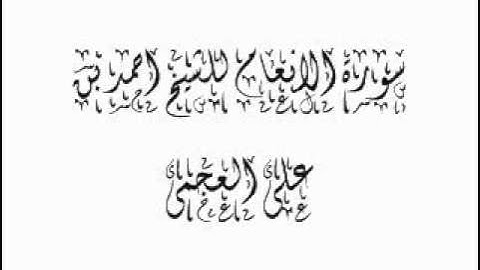 سورة الانعام للشيخ احمد بن
على العجمى